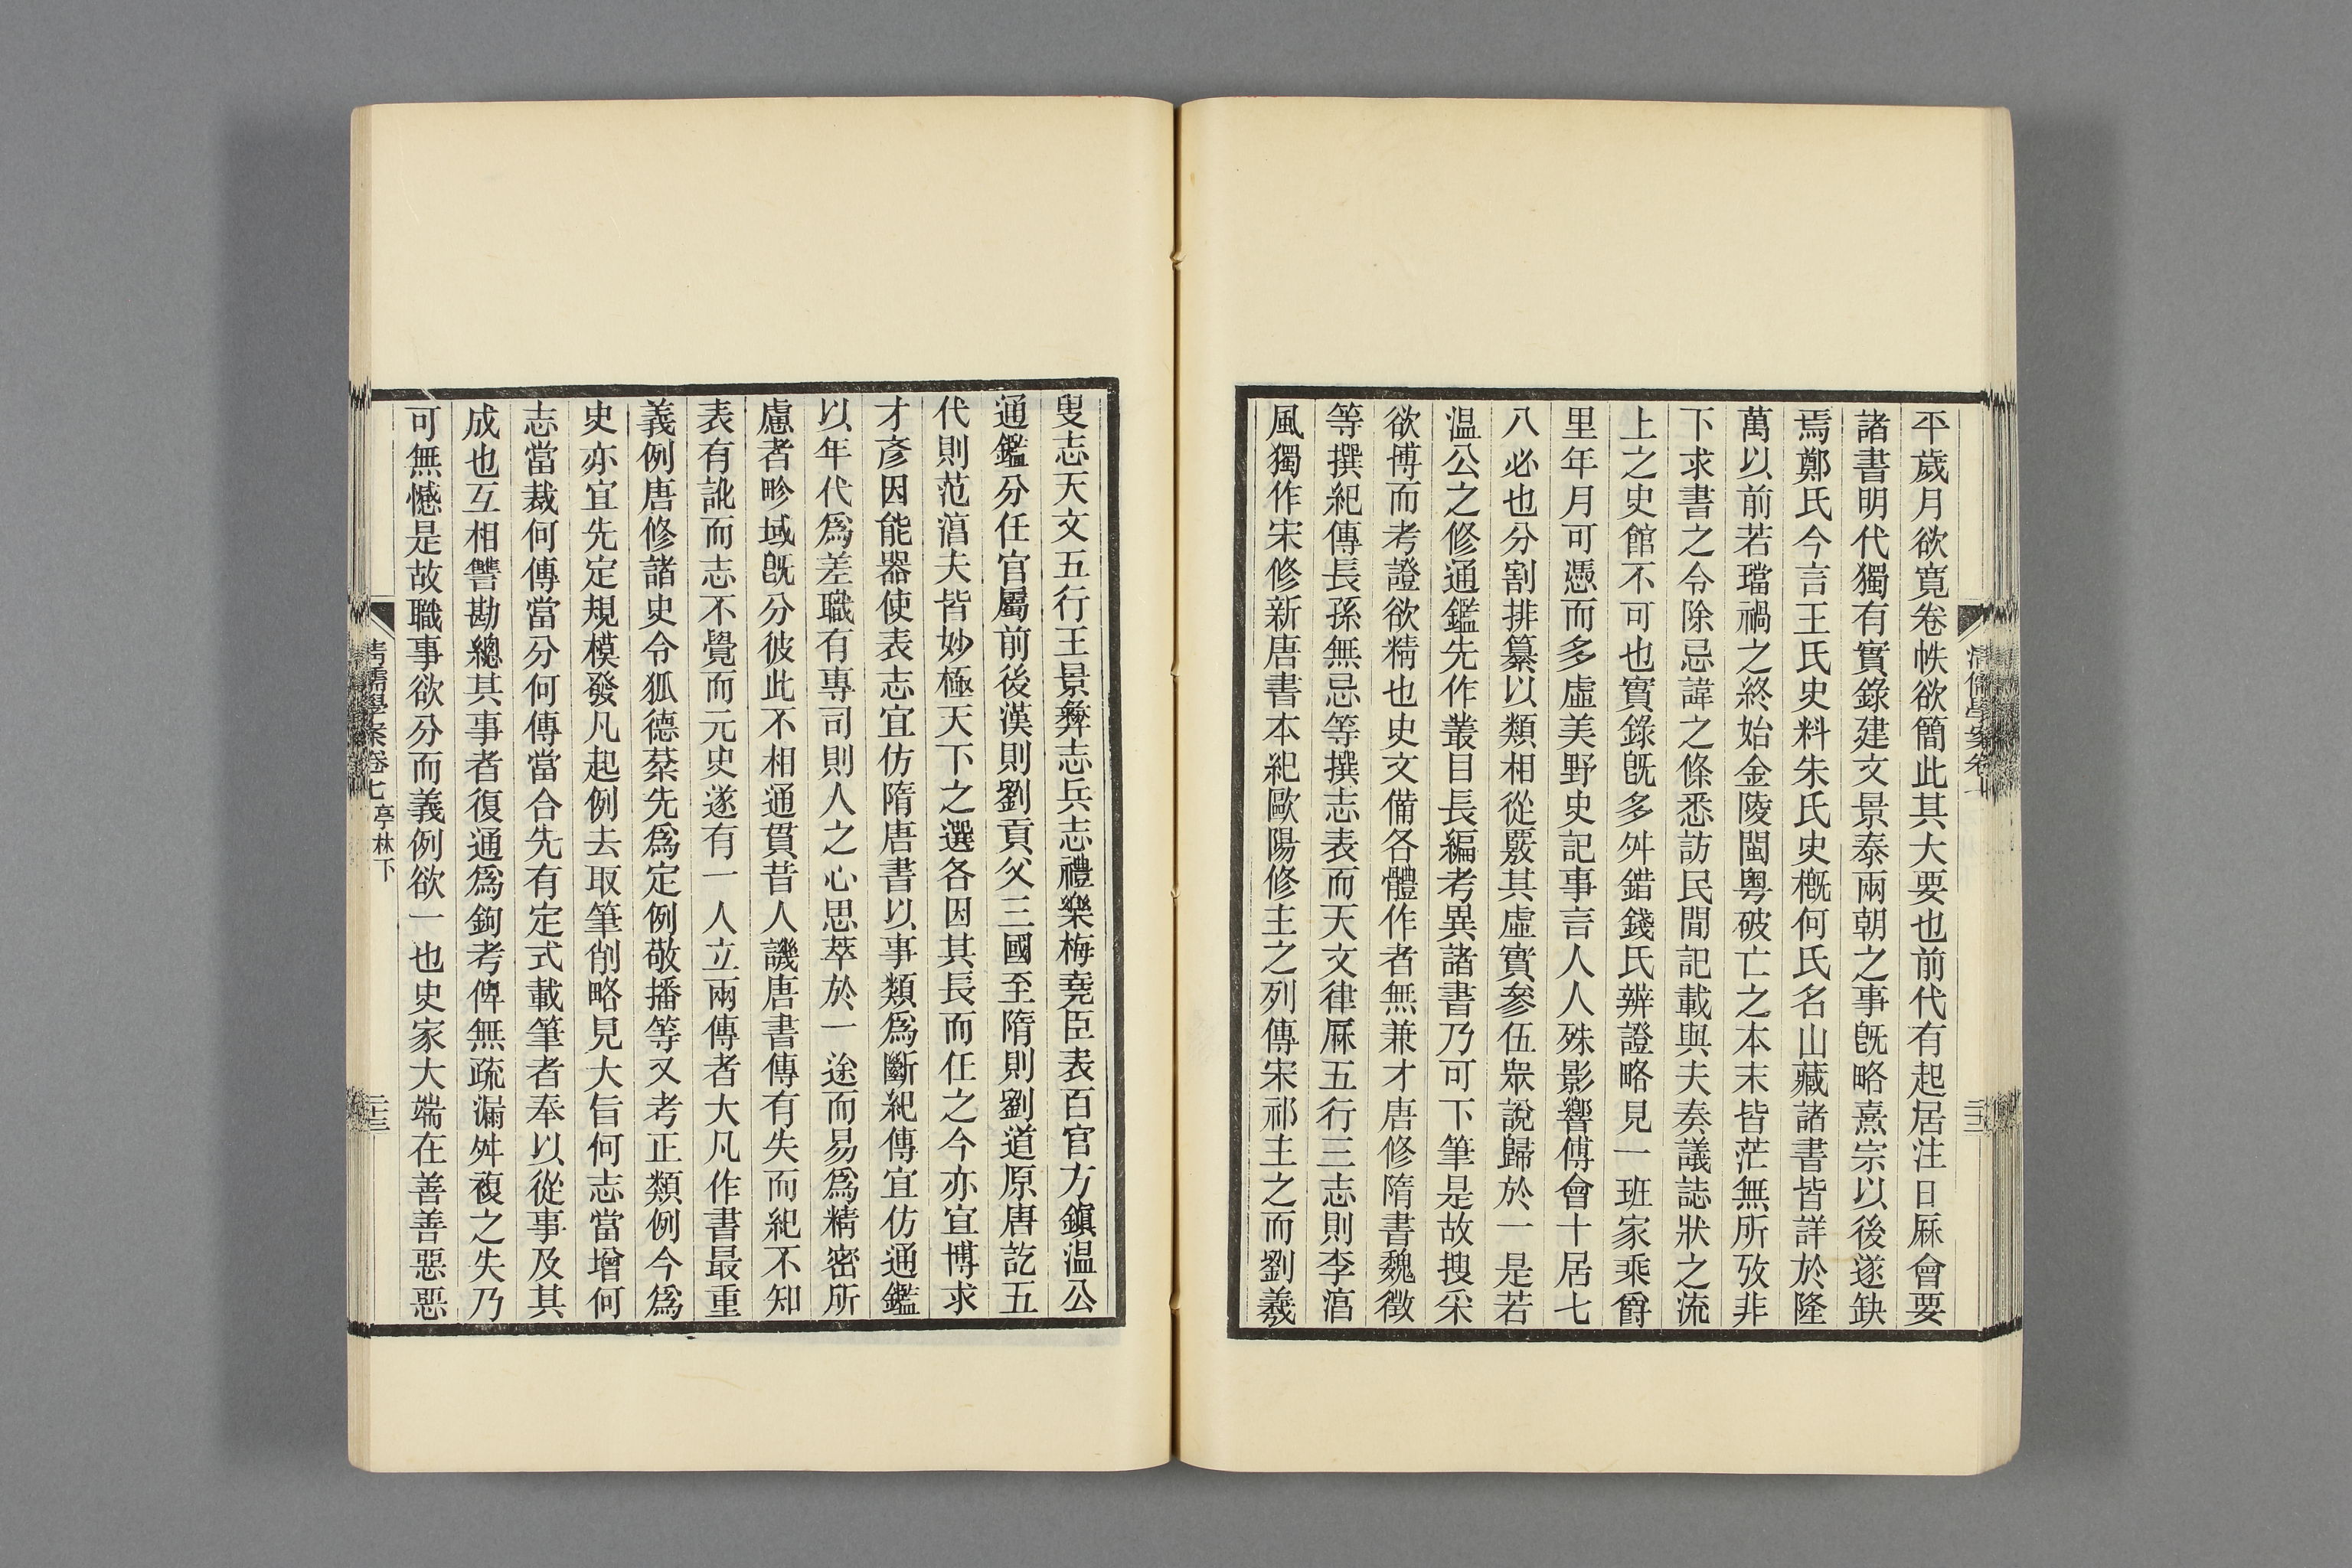 平歲月欲寬卷帙欲簡此其大要也前代有起居注日厤會要
諸書明代獨有實錄建文景泰兩朝之事旣略熹宗以後遂缺
焉鄭氏今言王氏史料朱氏史槪何氏名山藏諸書皆詳於隆
萬以前若璫禍之終始金陵閩粵破亡之本末皆茫無所攷非
下求書之令除忌諱之條悉訪民閒記載與夫奏議誌狀之流
上之史館不可也實錄旣多舛錯錢氏辨證略見一班家乘爵
里年月可憑而多虛美野史記事言人人殊影響傅會十居七
八必也分割排纂以類相從覈其虛實參伍眾說歸於一是若
温公之修通鑑先作叢目長編考異諸書乃可下筆是故搜采
欲博而考證欲精也史文備各體作者無兼才唐修隋書魏徵
等撰紀傳長孫無忌等撰志表而天文律厤五行三志則李淳
風獨作宋修新唐書本紀歐陽修主之列傳宋祁主之而劉羲
叟志天文五行王景彝志兵志禮樂梅堯臣表百官方鎮温公
通鑑分任官屬前後漢則劉貢父三國至隋則劉道原唐訖五
代則范淳夫皆妙極天下之選各因其長而任之今亦宜博求
才彥因能器使表志宜仿隋唐書以事類爲斷紀傳宜仿通鑑
以年代爲差職有專司則人之心思萃於一途而易爲精密所
慮者畛域旣分彼此不相通貫昔人譏唐書傳有失而紀不知
表有訛而志不覺而元史遂有一人立兩傳者大凡作書最重
義例唐修諸史令狐德棻先爲定例敬播等又考正類例今爲
史亦宜先定規模發凡起例去取筆削略見大旨何志當增何
志當裁何傳當分何傳當合先有定式載筆者奉以從事及其
成也互相讐勘總其事者復通爲鉤考俾無疏漏舛複之失乃
可無憾是故職事欲分而義例欲一也史家大端在善善惡惡
清儒學案卷七 亭林下
二十三